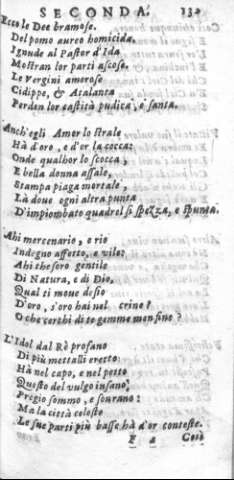 SECONDA. 132
Ecco le Dee bramose.
Del pomo aureo homicida.
Ignude al Pastor d'Ida
Mostran lor parti ascose.
Le Vergini amorose
Cidippe, & Atalanta
Perdon lor castità pudica, e santa.
Anch'egli Amor lo strale
Hà d'oro, e d'or la cocca:
Onde qualhor lo scocca,
E bella donna assale,
Stampa piaga mortale,
Là doue ogni altra punta
D'impiombato quadrel si spezza, e spunta.
Ahi mercenario, e rio
Indegno affetto, e vile:
Ahi thesoro gentile
Di Natura, e di Dio,
Qual ti moue desio
D'oro, s'oro hai nel crine?
O che cerchi di te gemme men fine?
L'Idol dal Rè profano
Di più mettalli eretto
Hà nel capo, e nel petto
Questo del vulgo insano,
Pregio sommo, e sourano:
Ma la città celeste
Le sue parti più basse hà d'or conteste.
Così